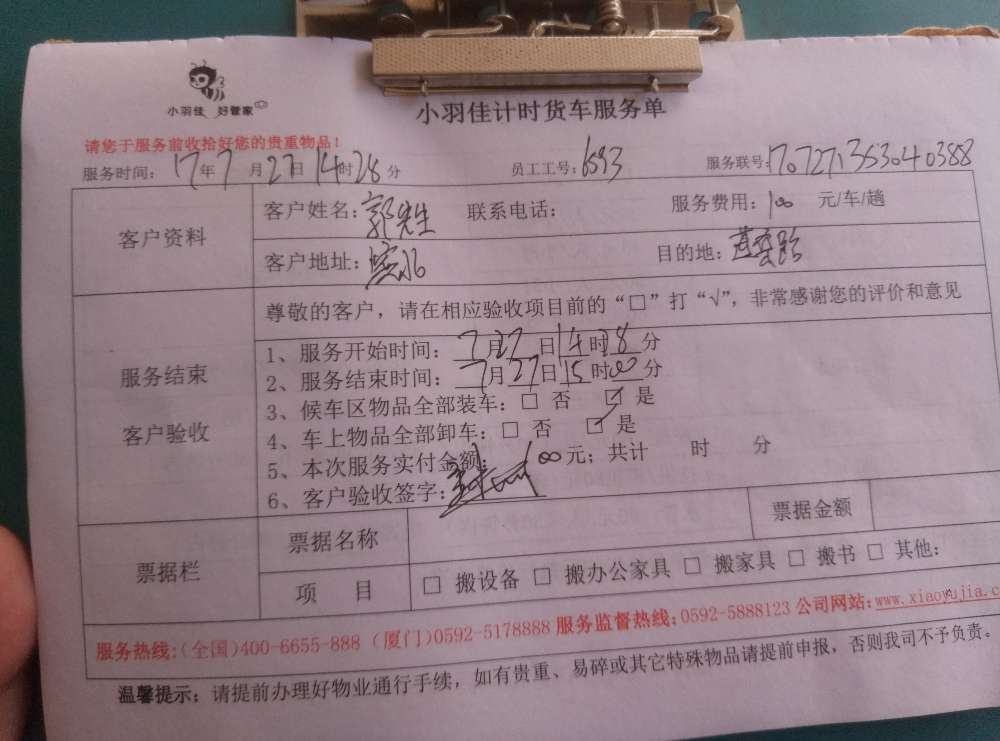 小羽佳 好管家
小羽佳计时货车服务单
请您于服务前收拾好您的贵重物品！
服务时间：17年7月27日14时28分 员工工号：6593 服务联号：1707271353040388
客户资料
客户姓名：郭先生 联系电话： 服务费用：100 元/车/趟
客户地址： 目的地：
服务结束
客户验收
尊敬的客户，请在相应验收项目前的“□”打“√”，非常感谢您的评价和意见
1、服务开始时间：7月27日14时28分
2、服务结束时间：7月27日15时00分
3、候车区物品全部装车：□ 否 ☑ 是
4、车上物品全部卸车：□ 否 ☑ 是
5、本次服务实付金额：100元；共计 时 分
6、客户验收签字：
票据栏
票据名称 票据金额
项 目 □ 搬设备 □ 搬办公家具 □ 搬家具 □ 搬书 □ 其他：
服务热线：（全国）400-6655-888（厦门）0592-5178888 服务监督热线：0592-5888123 公司网站：www.xiaoyujia.c
温馨提示：请提前办理好物业通行手续，如有贵重、易碎或其它特殊物品请提前申报，否则我司不予负责。